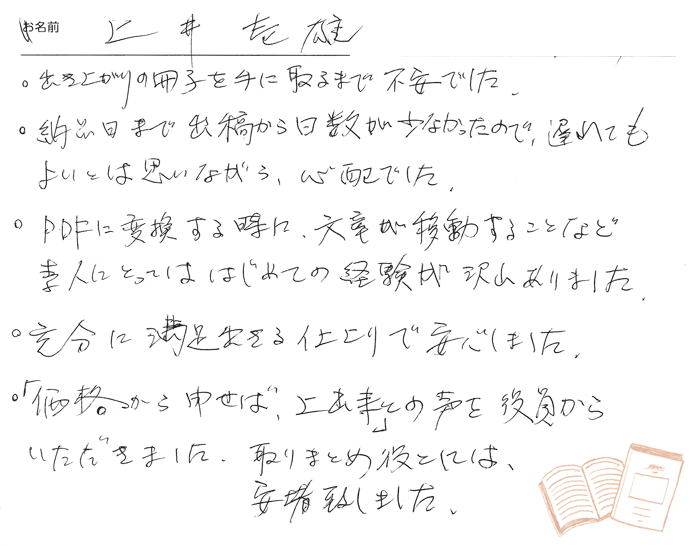 お名前 上井 壱雄
。出き上がりの冊子を手に取るまで不安でした。
。納品日まで出稿から日数が少なかったので、遅れても
よいとは思いながら、心配でした。
。PDFに変換する時に、文章が移動することなど
素人にとっては はじめての経験が沢山ありました。
。充分に満足出きる仕上りで安心しました。
。「価格から申せば、上出来」との声を役員から
いただきました。取りまとめ役としては、
安堵致しました。